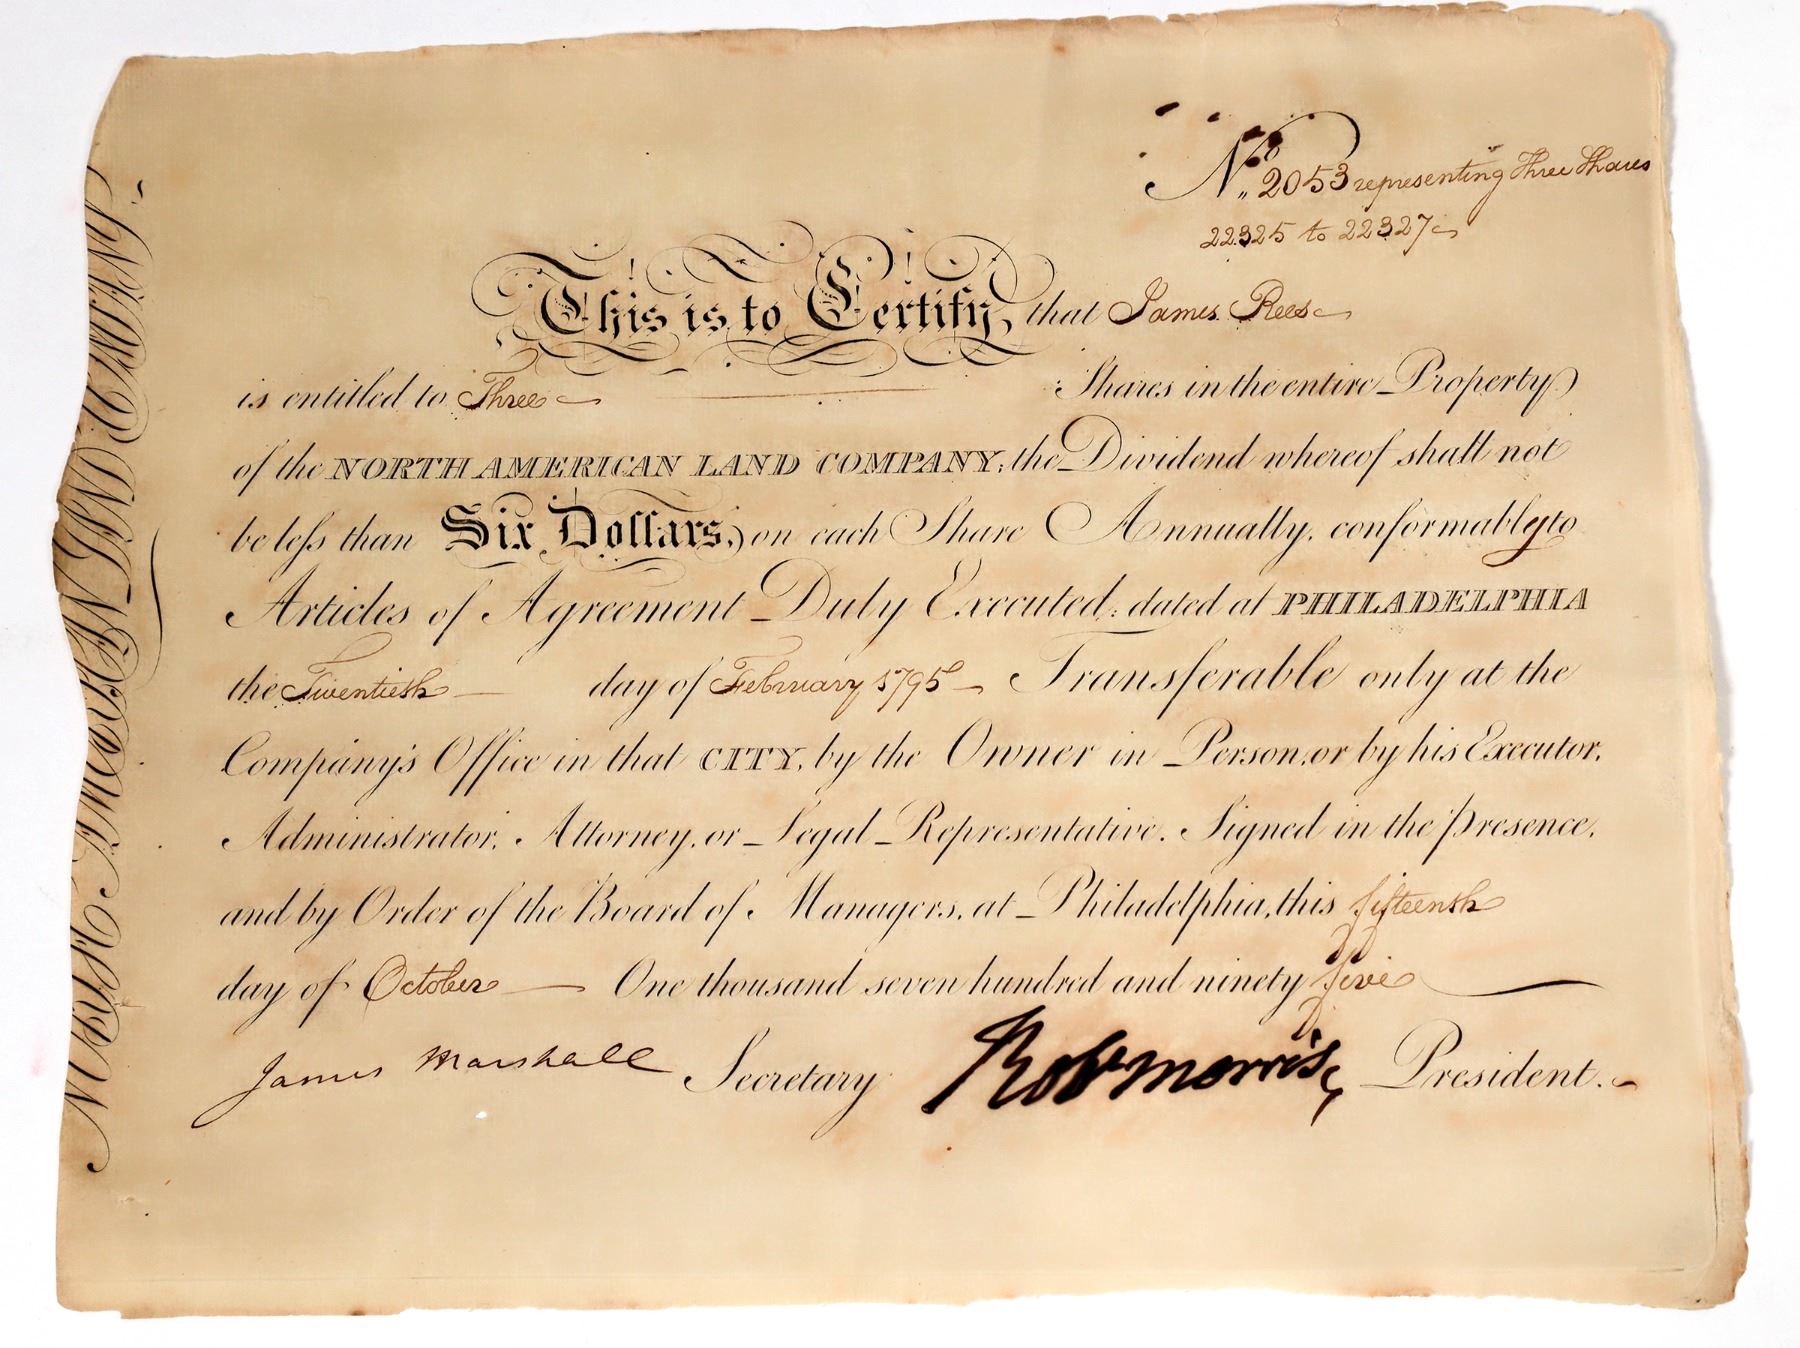 No. 2053 representing Three Shares
22325 to 22327
This is to Certify, that James Rees
is entitled to Three Shares in the entire Property
of the NORTH AMERICAN LAND COMPANY; the Dividend whereof shall not
be leſs than Six Dollars, on each Share Annually, conformably to
Articles of Agreement Duly Executed; dated at PHILADELPHIA
the Twentieth day of February 1795 Transferable only at the
Company's Office in that CITY, by the Owner in Person, or by his Executor,
Administrator, Attorney, or Legal Representative. Signed in the presence,
and by Order of the Board of Managers, at Philadelphia, this fifteenth
day of October One thousand seven hundred and ninety five
James Marshall Secretary Robt Morris President.
NORTH AMERICAN LAND COMPANY